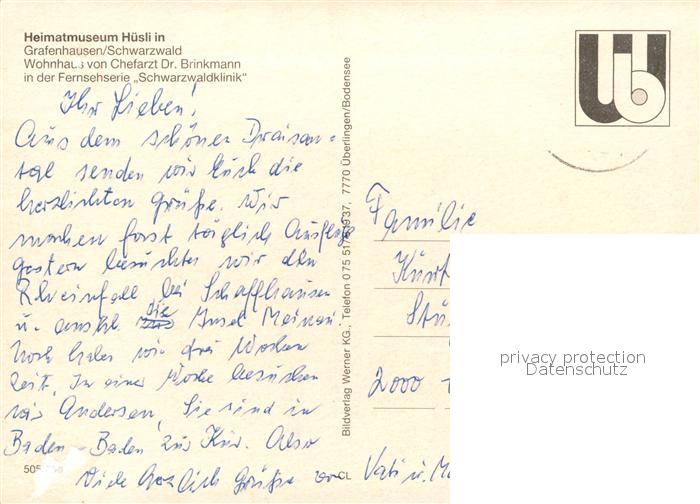 Heimatmuseum Hüsli in
Grafenhausen/Schwarzwald
Wohnhaus von Chefarzt Dr. Brinkmann
in der Fernsehserie „Schwarzwaldklinik"
Ihr Lieben!
Aus dem schönen Dreisam-
tal senden wir Euch die
herzlichsten Grüße. Wir
machen fast täglich Ausflüge
gestern besuchten wir den
Rheinfall bei Schaffhausen
u. anschl. die Insel Mainau
Noch haben wir drei Wochen
Zeit. In einer Woche besuchen
wir Andersen, Sie sind in
Baden-Baden zur Kur. Also
Viele herzlich Grüße von
Vati u. M
505
CL
Bildverlag Werner KG., Telefon 0 75 51/ 37, 7770 Überlingen/Bodensee
Ub
Familie
Kurt
2000
privacy protection
Datenschutz